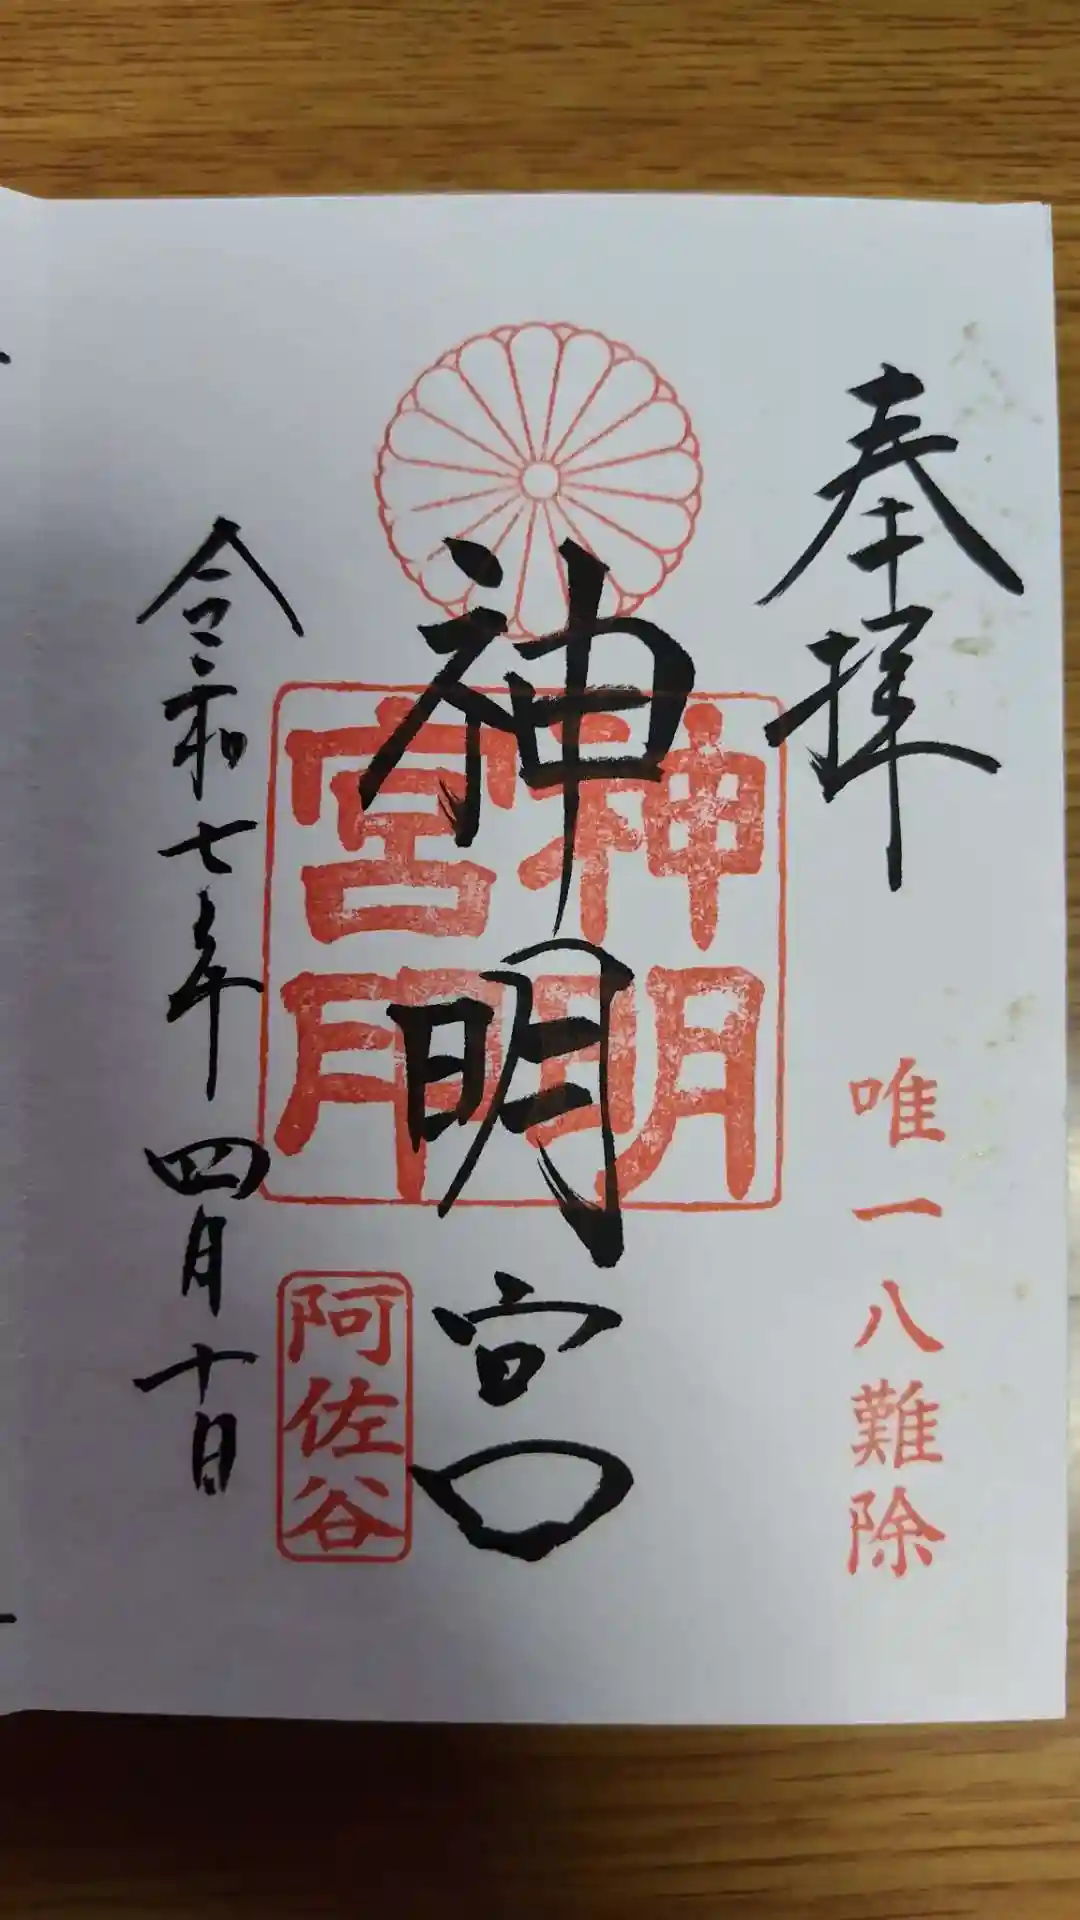 奉拝
唯一八難除
神明宮
神明
宮印
阿佐谷
令和七年四月十日